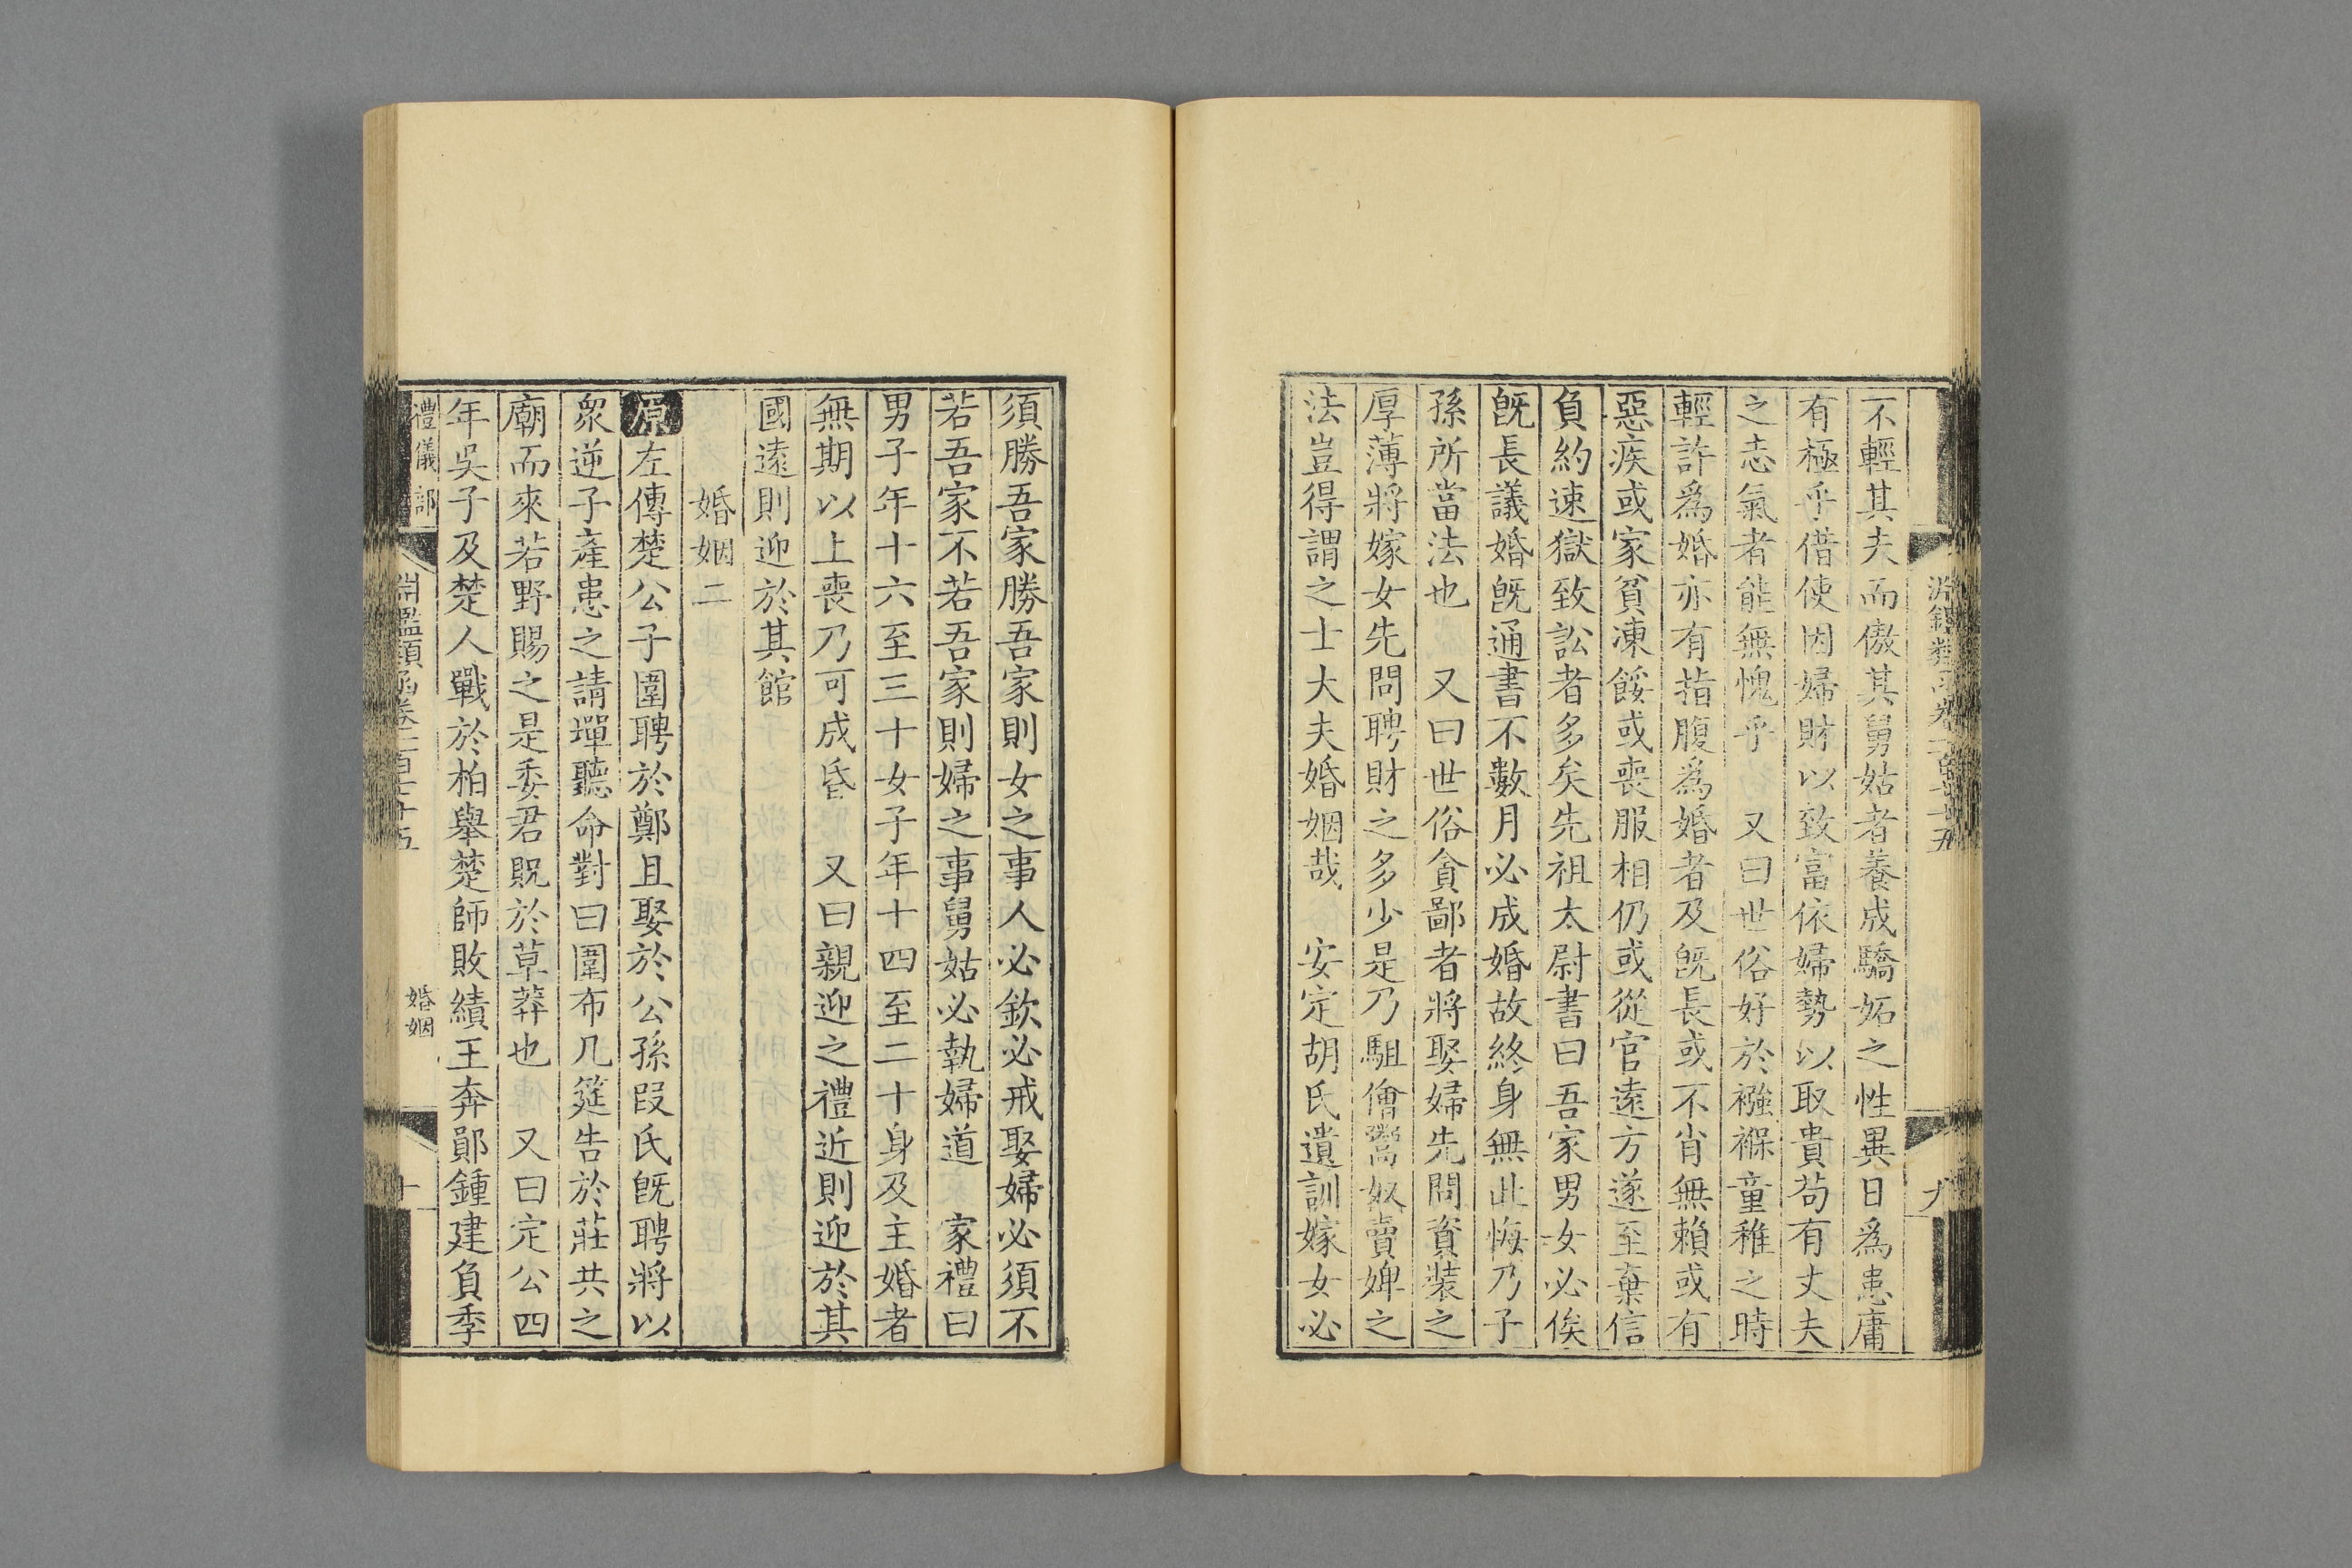 不輕其夫而傲其舅姑者養成驕妬之性異日爲患庸
有極乎借使因婦財以致富依婦勢以取貴苟有丈夫
之志氣者能無愧乎 又曰世俗好於襁褓童稚之時
輕許爲婚亦有指腹爲婚者及旣長或不肖無賴或有
惡疾或家貧凍餒或喪服相仍或從官遠方遂至棄信
負約速獄致訟者多矣先祖太尉書曰吾家男女必俟
旣長議婚旣通書不數月必成婚故終身無此悔乃子
孫所當法也 又曰世俗貪鄙者將娶婦先問資裝之
厚薄將嫁女先問聘財之多少是乃駔儈鬻奴賣婢之
法豈得謂之士大夫婚姻哉 安定胡氏遺訓嫁女必
須勝吾家勝吾家則女之事人必欽必戒娶婦必須不
若吾家不若吾家則婦之事舅姑必執婦道 家禮曰
男子年十六至三十女子年十四至二十身及主婚者
無期以上喪乃可成昏 又曰親迎之禮近則迎於其
國遠則迎於其館
婚姻二
原左傳楚公子圍聘於鄭且娶於公孫段氏旣聘將以
衆逆子產患之請墠聽命對曰圍布几筵告於莊共之
廟而來若野賜之是委君貺於草莽也 又曰定公四
年吳子及楚人戰於柏舉楚師敗績王奔鄖鍾建負季
禮儀部
淵鑑類函卷二百七十五
婚姻
十